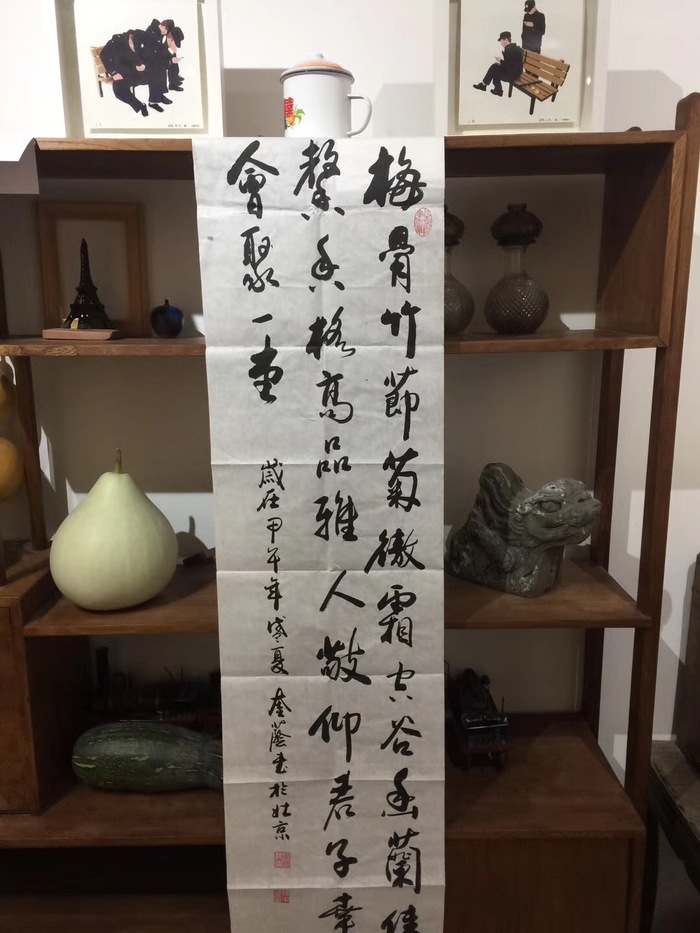 梅骨竹節菊傲霜空谷幽蘭佳
馨香格高品雅人敬仰君子幸
會聚一堂
歲在甲午年盛夏 奎蔭書於北京
囍